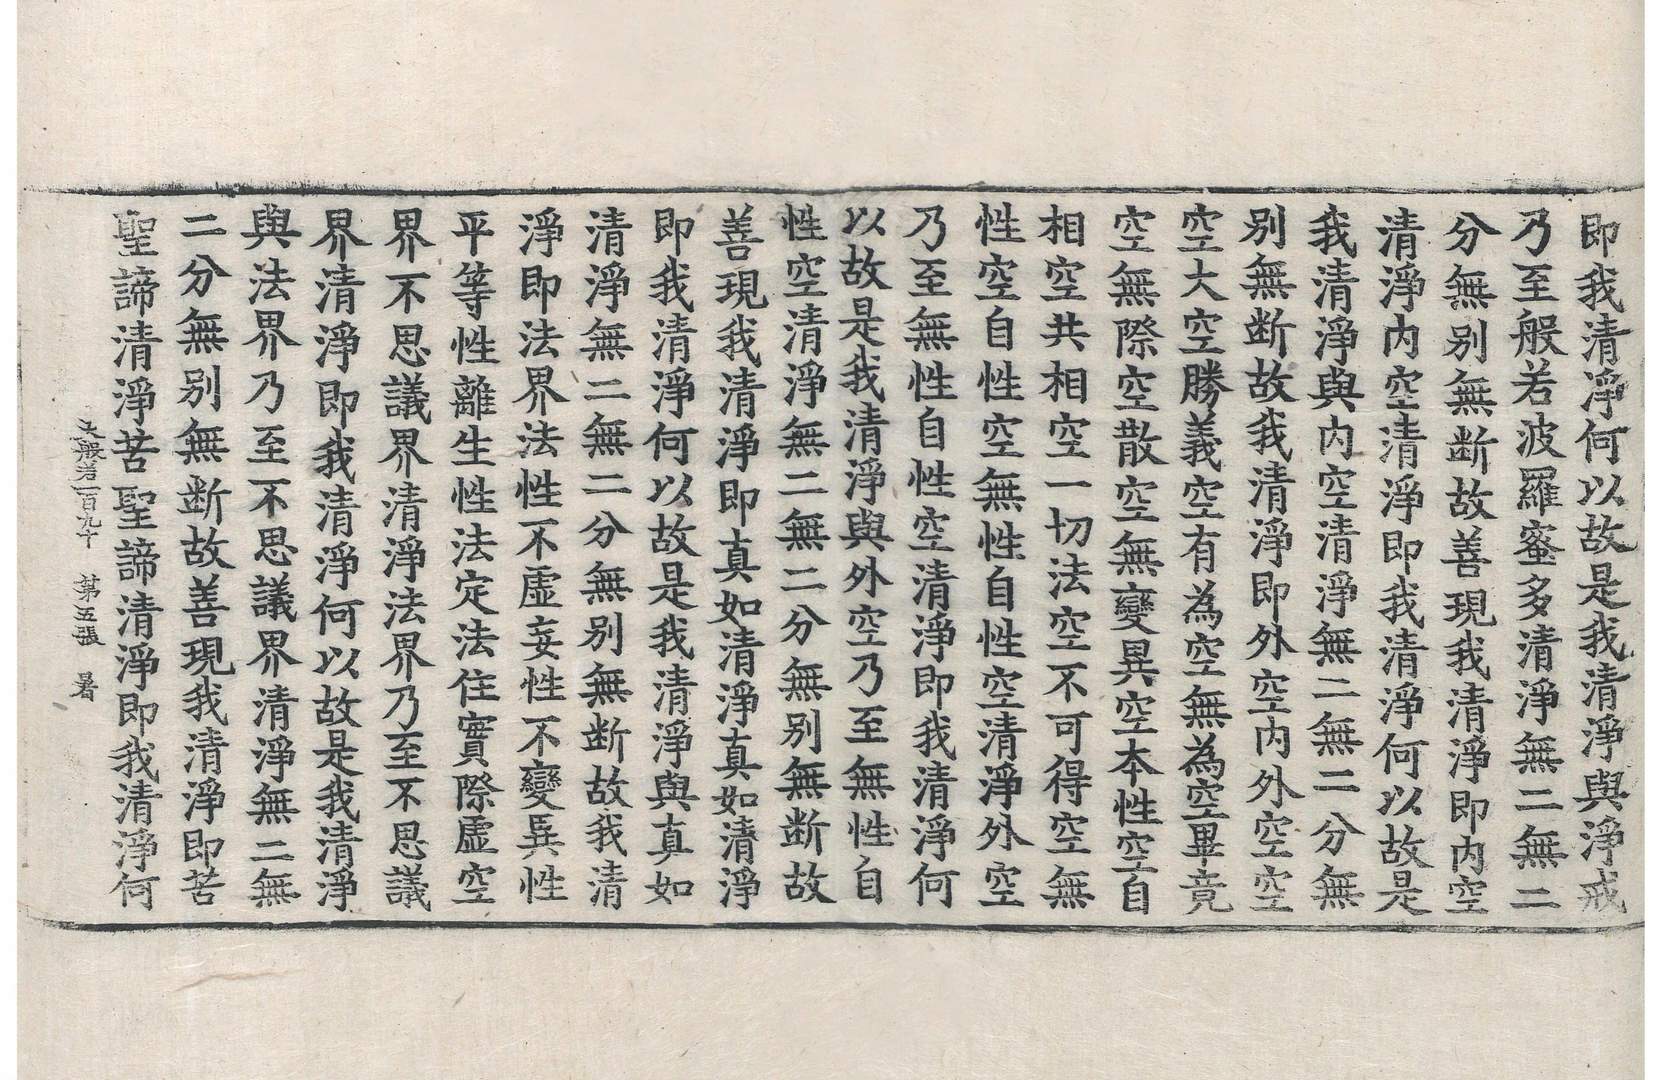 即我清淨何以故是我清淨與淨戒
乃至般若波羅蜜多清淨無二無二
分無别無断故善現我清淨即内空
清淨内空清淨即我清淨何以故是
我清淨與内空清淨無二無二分無
别無断故我清淨即外空内外空空
空大空勝義空有為空無為空畢竟
空無際空散空無變異空本性空自
相空共相空一切法空不可得空無
性空自性空無性自性空清淨外空
乃至無性自性空清淨即我清淨何
以故是我清淨與外空乃至無性自
性空清淨無二無二分無别無断故
善現我清淨即真如清淨真如清淨
即我清淨何以故是我清淨與真如
清淨無二無二分無别無断故我清
淨即法界法性不虛妄性不變異性
平等性離生性法定法住實際虛空
界不思議界清淨法界乃至不思議
界清淨即我清淨何以故是我清淨
與法界乃至不思議界清淨無二無
二分無别無断故善現我清淨即苦
聖諦清淨苦聖諦清淨即我清淨何
大般若一百九十 第五張 暑